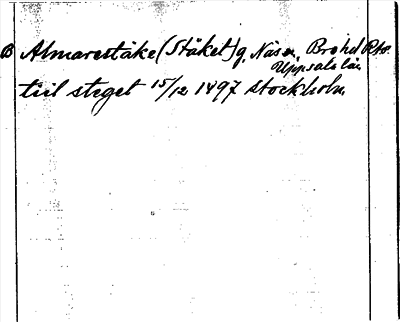 B Almarestäke (Stäket) g. Näs s. Bro hd Rkr.
Uppsala län
till steget 15/12 1497 Stockholm.